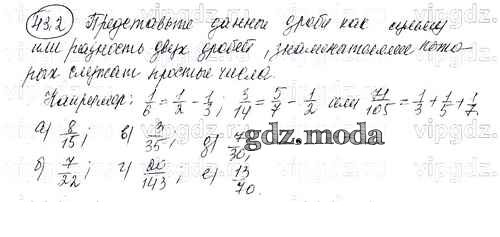 43.2 Представьте данные дроби как сумму
или разность двух дробей, знаменателями кото-
рых служат простые числа.
Например: 1/6 = 1/2 - 1/3; 3/14 = 5/7 - 1/2 или 71/105 = 1/3 + 1/5 + 1/7
а) 8/15; в) /35; д) /30;
б) 7/22; г) 20/143; е) 13/70.
gdz.moda